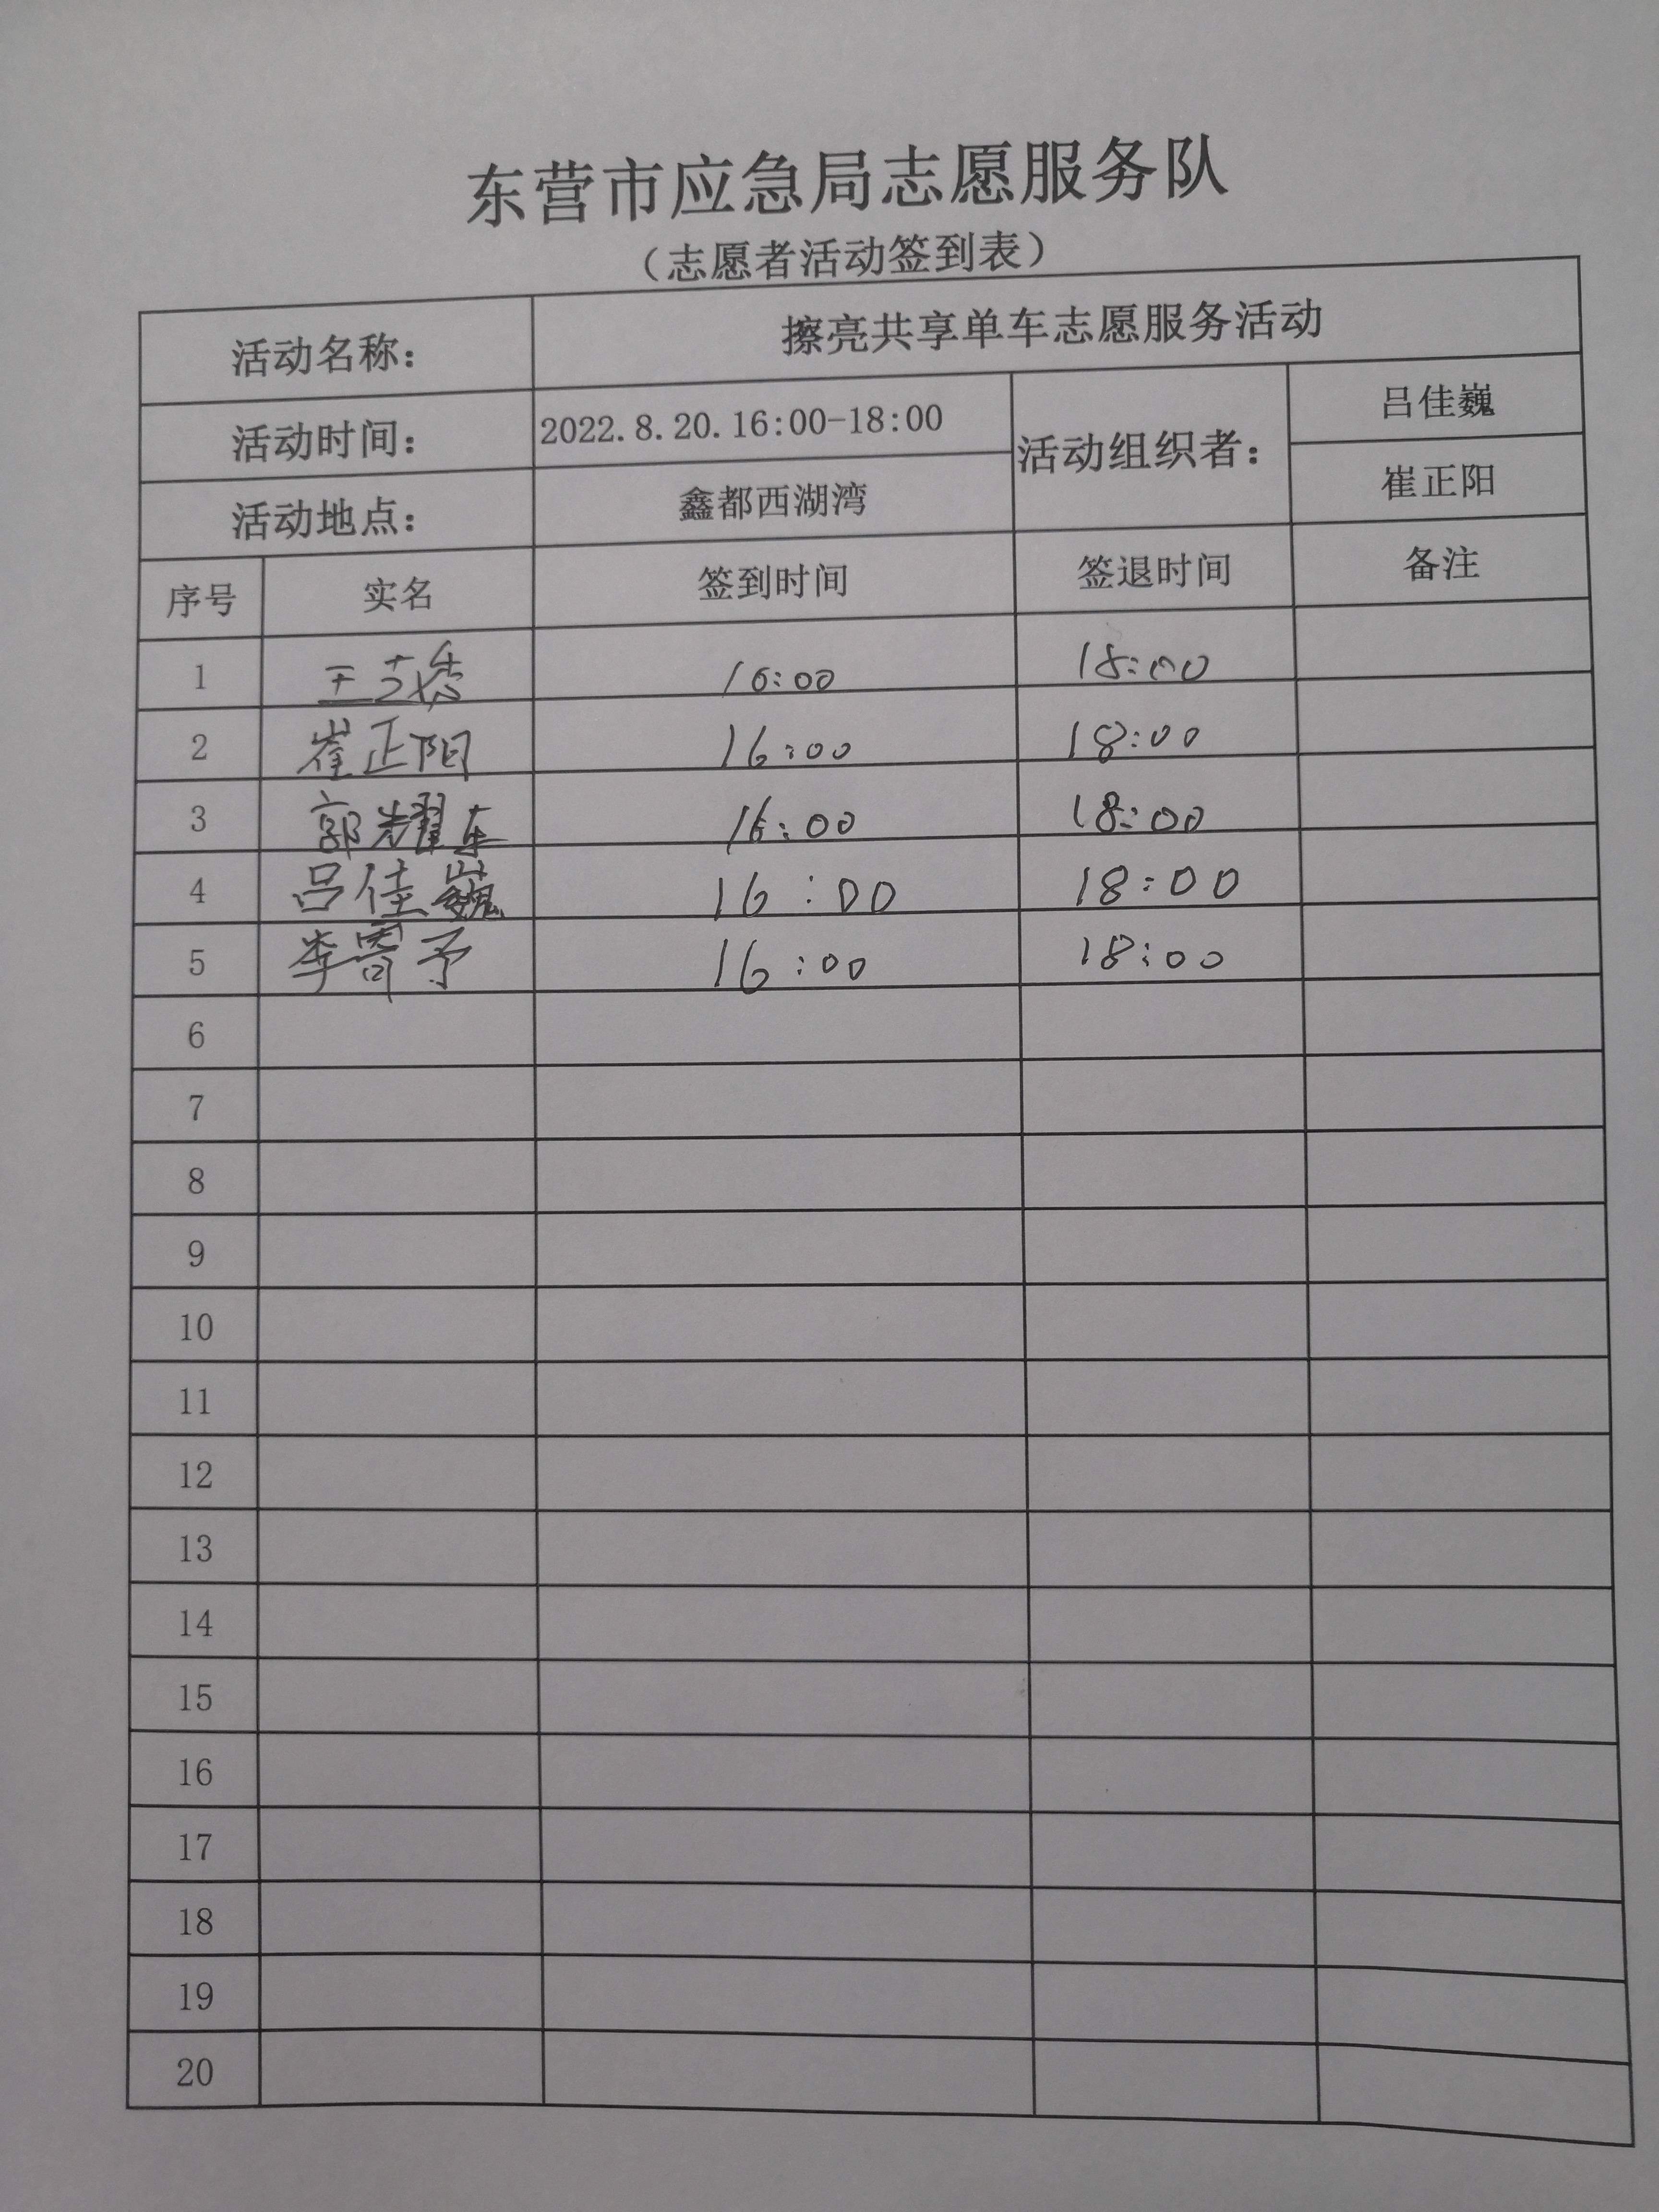 东营市应急局志愿服务队
（志愿者活动签到表）
活动名称： 擦亮共享单车志愿服务活动
活动时间： 2022.8.20.16:00-18:00 活动组织者： 吕佳巍
崔正阳
活动地点： 鑫都西湖湾
序号 实名 签到时间 签退时间 备注
1 王 16:00 18:00
2 崔正阳 16:00 18:00
3 郭耀东 16:00 18:00
4 吕佳巍 16:00 18:00
5 李 予 16:00 18:00
6
7
8
9
10
11
12
13
14
15
16
17
18
19
20